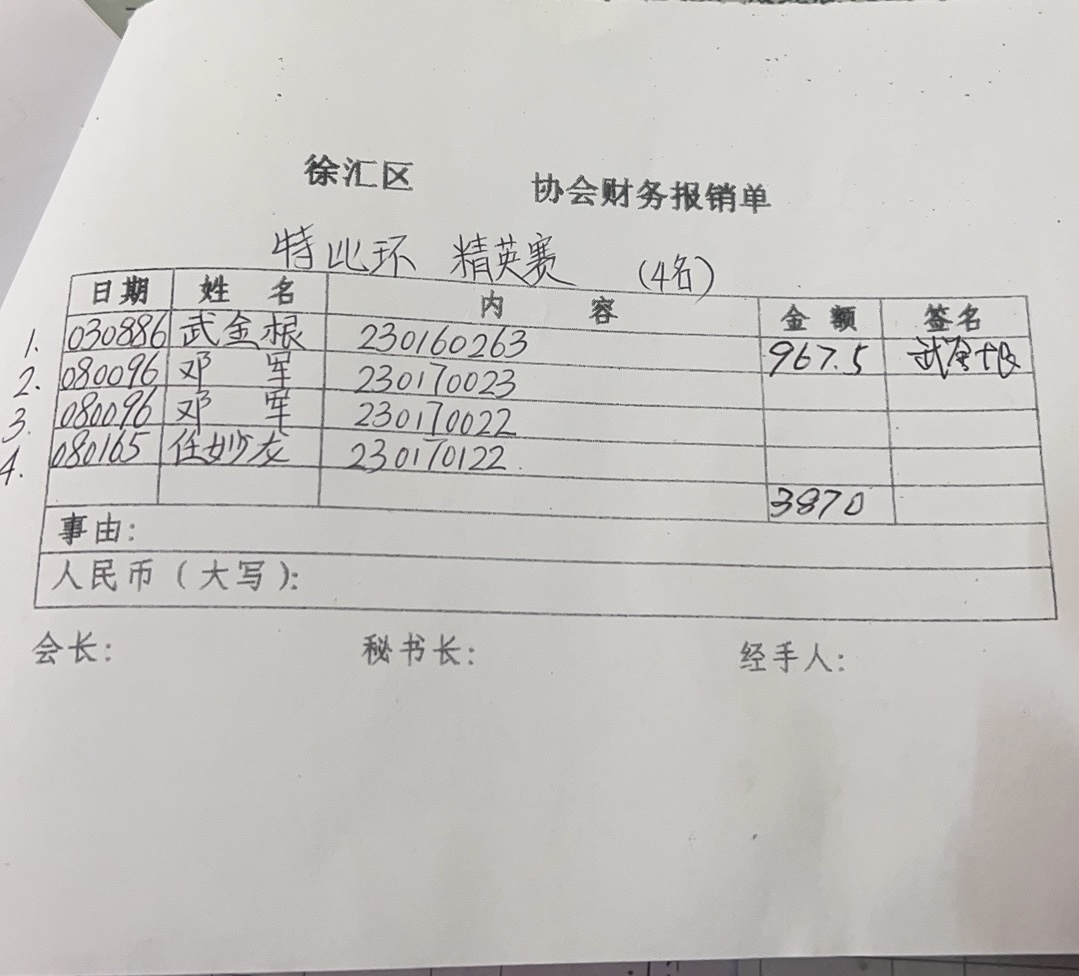 徐汇区 协会财务报销单
特比环 精英赛 (4名)
日期 姓 名 内 容 金 额 签名
1. 030886 武金根 230160263 967.5 武金根
2. 080096 邓 军 230170023
3. 080096 邓 军 230170022
4. 080165 任妙龙 230170122
3870
事由:
人民币(大写):
会长: 秘书长: 经手人: